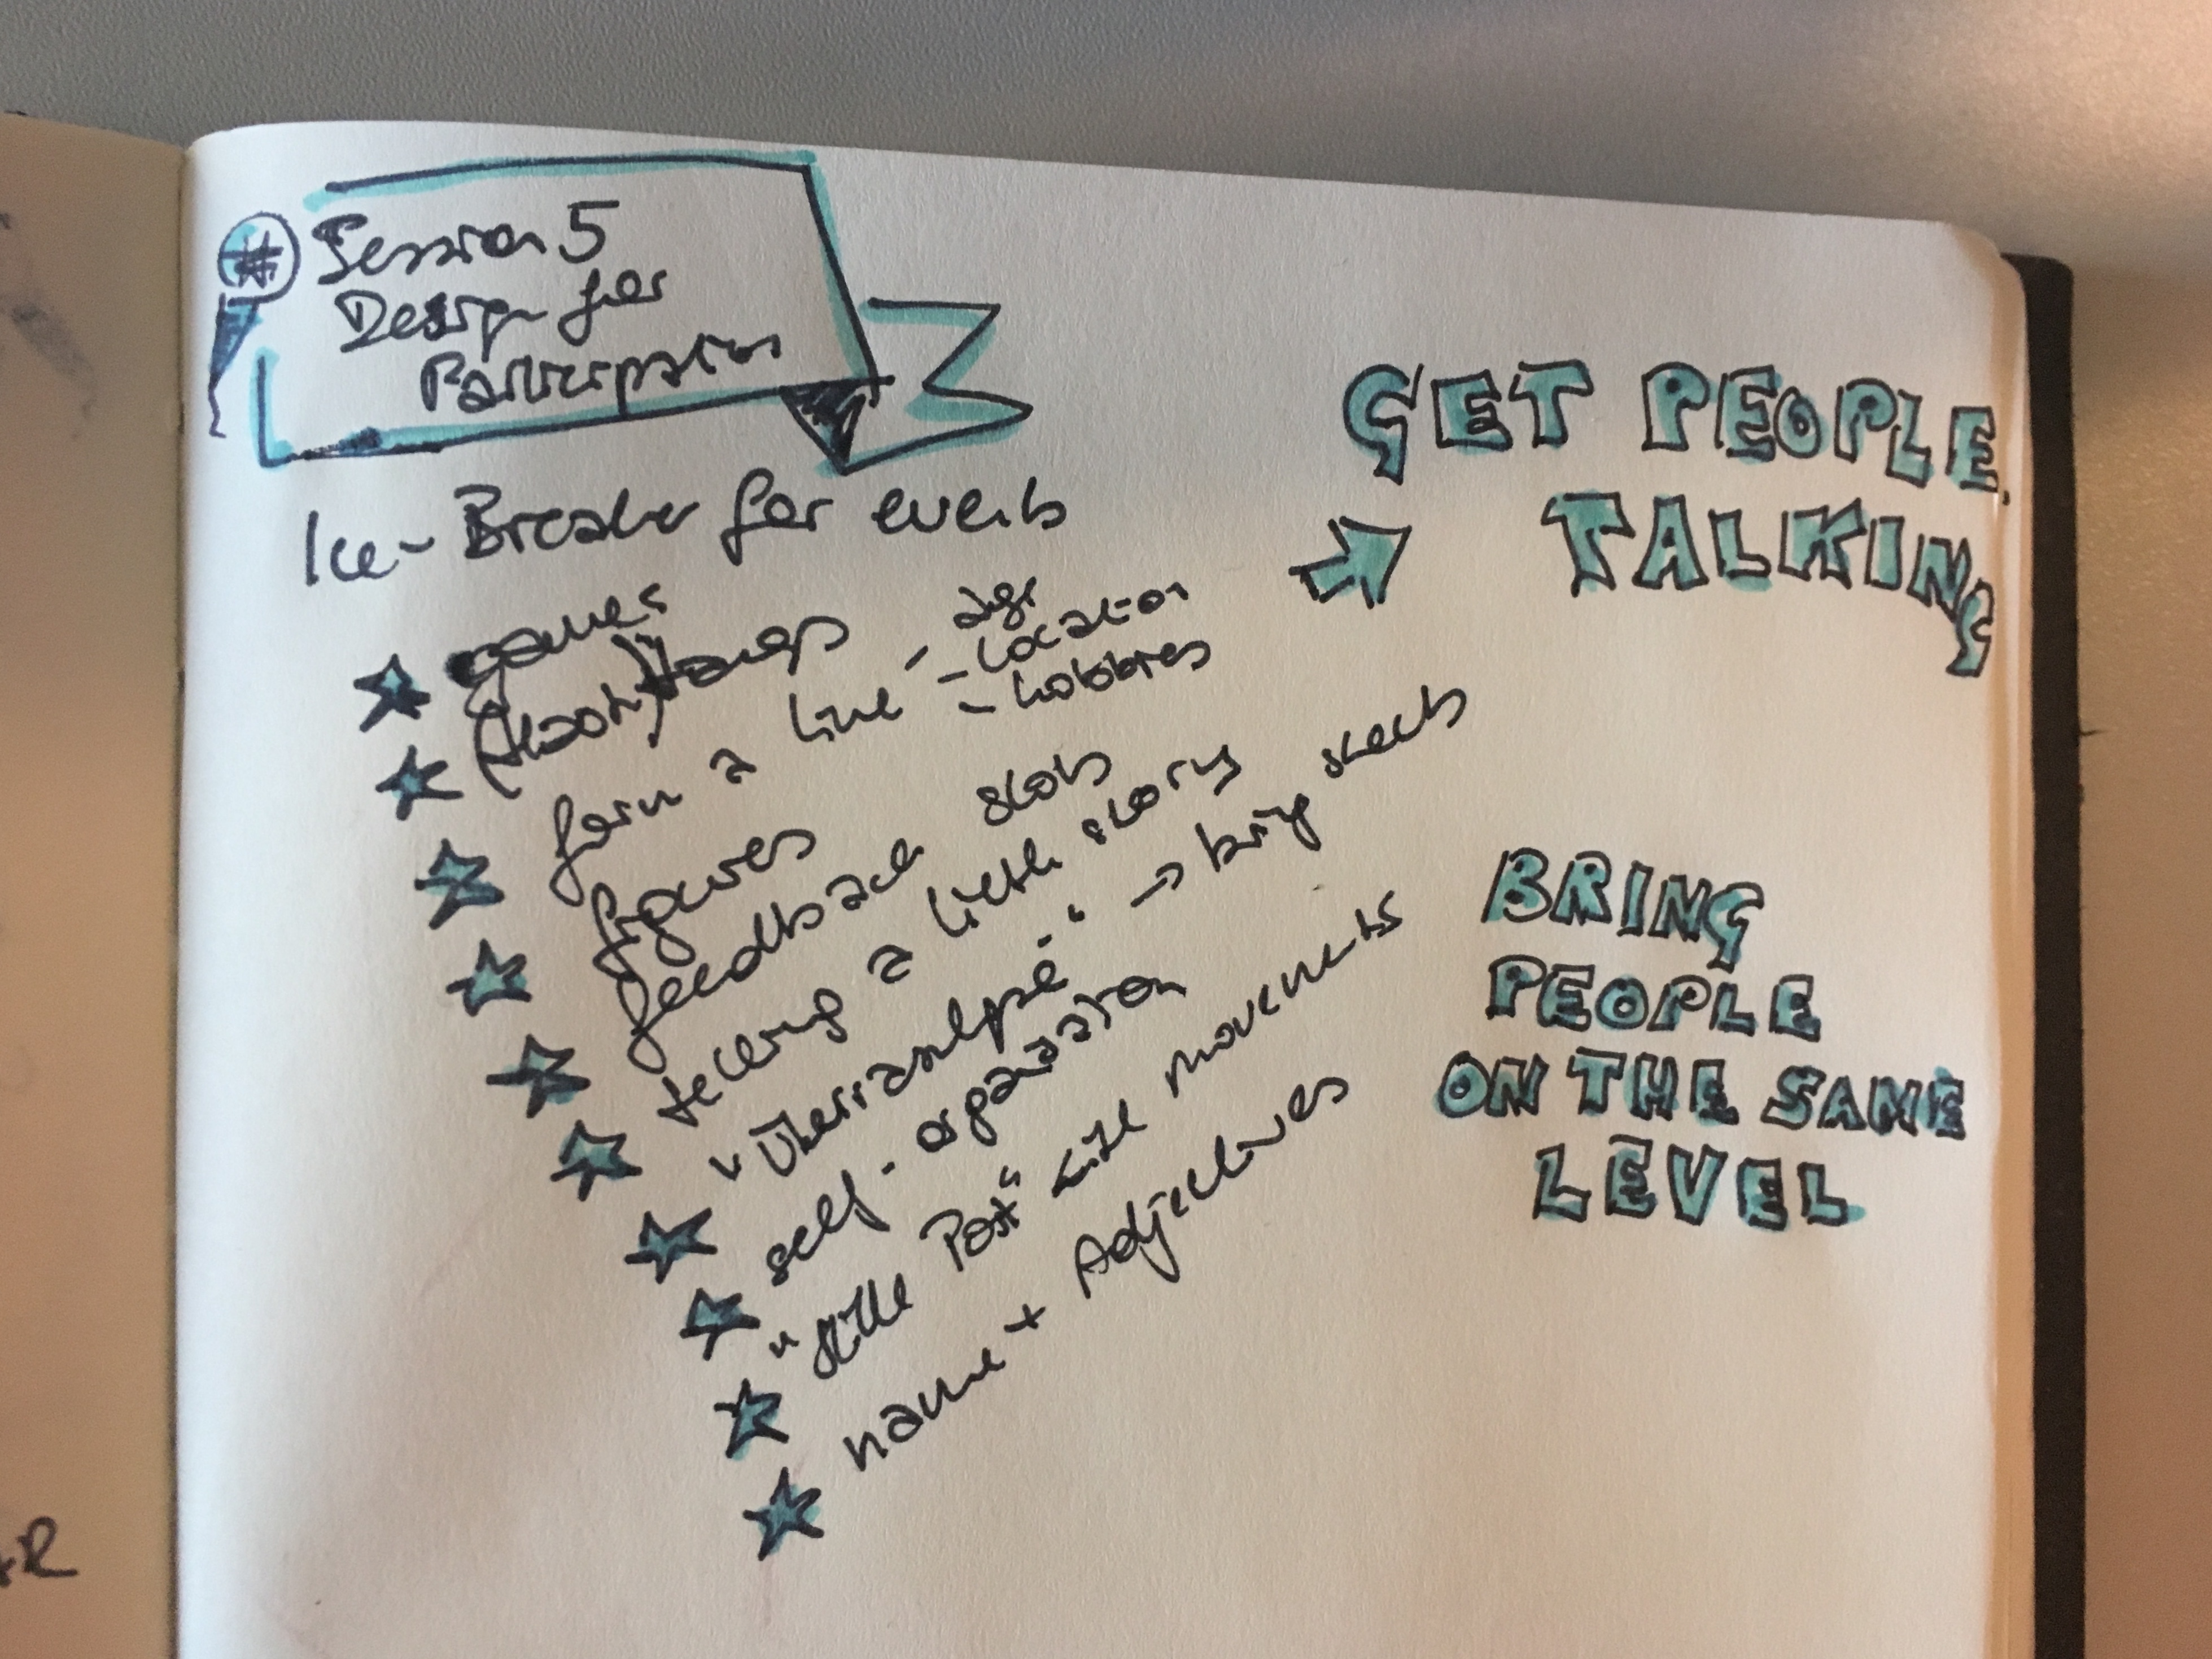 # Session 5
Design for
Participation
Ice-Breaker for events
games
(Hash)tags
form a line - age
- location
- hobbies
figures
feedback slots
telling a little story
"Überraschungsei" → bring
self-organisation
"Stille Post" like movements
name + Adjectives
GET PEOPLE
TALKING
BRING
PEOPLE
ON THE SAME
LEVEL
+R